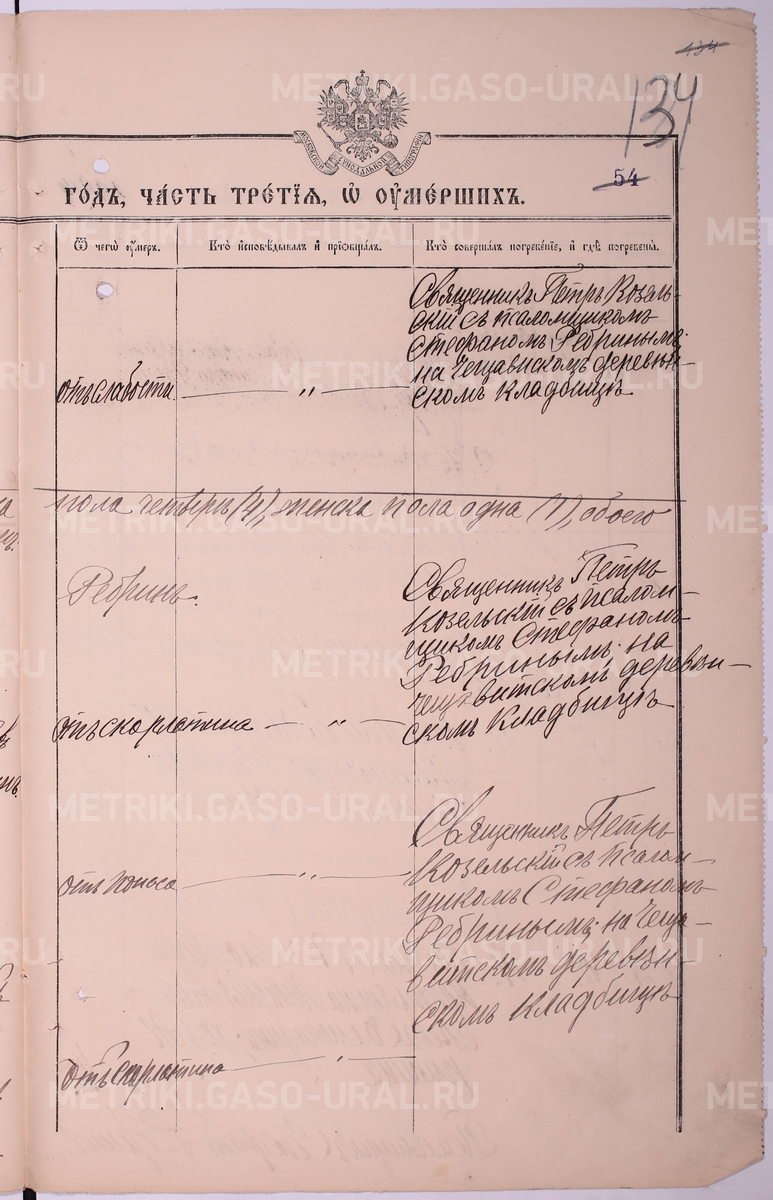 434
134
МОСКОВСКОЙ СѴНОДАЛЬНОЙ ТИПОГРАФІИ
54
ГО́ДЪ, ЧА́СТЬ ТРЕ́ТІѦ, Ѡ҆ ОУ҆МЕ́РШИХЪ.
Ѿ чегѡ̀ оу҆́меръ.
Кто̀ и҆сповѣ́дывалъ и҆ прїѻбща́лъ.
Кто̀ соверша́лъ погребе́нїе, и҆ гдѣ̀ погребены̀.
Священникъ Петръ Козель-
скій съ псаломщикомъ
Стефаномъ Ребринымъ;
на Чещавискомъ деревен-
скомъ кладбищѣ.
отъ слабости — „ —
пола четыре (4), женска пола одна (1), обоего
Ребринъ.
Священникъ Петръ
Козельскій съ псалом-
щикомъ Стефаномъ
Ребринымъ; на
Чещавитскомъ деревен-
скомъ кладбищѣ
отъ скорлатина — „ —
Священникъ Петръ
Козельскій съ псалом-
щикомъ Стефаномъ
Ребринымъ; на Чеща-
витскомъ деревен-
скомъ кладбищѣ
отъ поноса — „ —
отъ скорлатина — „ —
METRIKI.GASO-URAL.RU